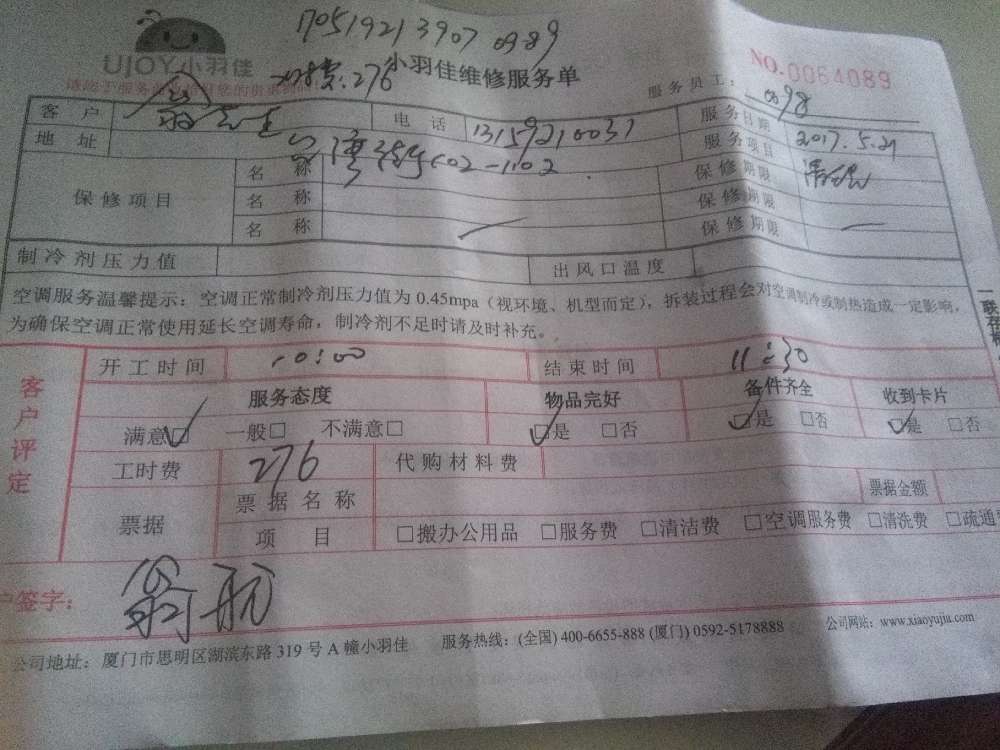 17051921 3907 0989
UJOY小羽佳
276
小羽佳维修服务单
NO.0064089
服务员工: 0098
客户 翁先生 电话 13159210037 服务日期 2017.5.21
地址 602-1102 服务项目
保修项目 名称 保修期限
名称 保修期限
名称 保修期限
制冷剂压力值 出风口温度
空调服务温馨提示：空调正常制冷剂压力值为0.45mpa（视环境、机型而定），拆装过程会对空调制冷或制热造成一定影响，
为确保空调正常使用延长空调寿命，制冷剂不足时请及时补充。
客户评定
开工时间 10:00 结束时间 11:30
服务态度 物品完好 备件齐全 收到卡片
满意□ 一般□ 不满意□ □是 □否 □是 □否 □是 □否
工时费 276 代购材料费
票据 票据名称 票据金额
项目 □搬办公用品 □服务费 □清洁费 □空调服务费 □清洗费 □疏通
户签字: 翁
公司地址：厦门市思明区湖滨东路319号A幢小羽佳 服务热线：(全国) 400-6655-888 (厦门) 0592-5178888 公司网站：www.xiaoyujia.com